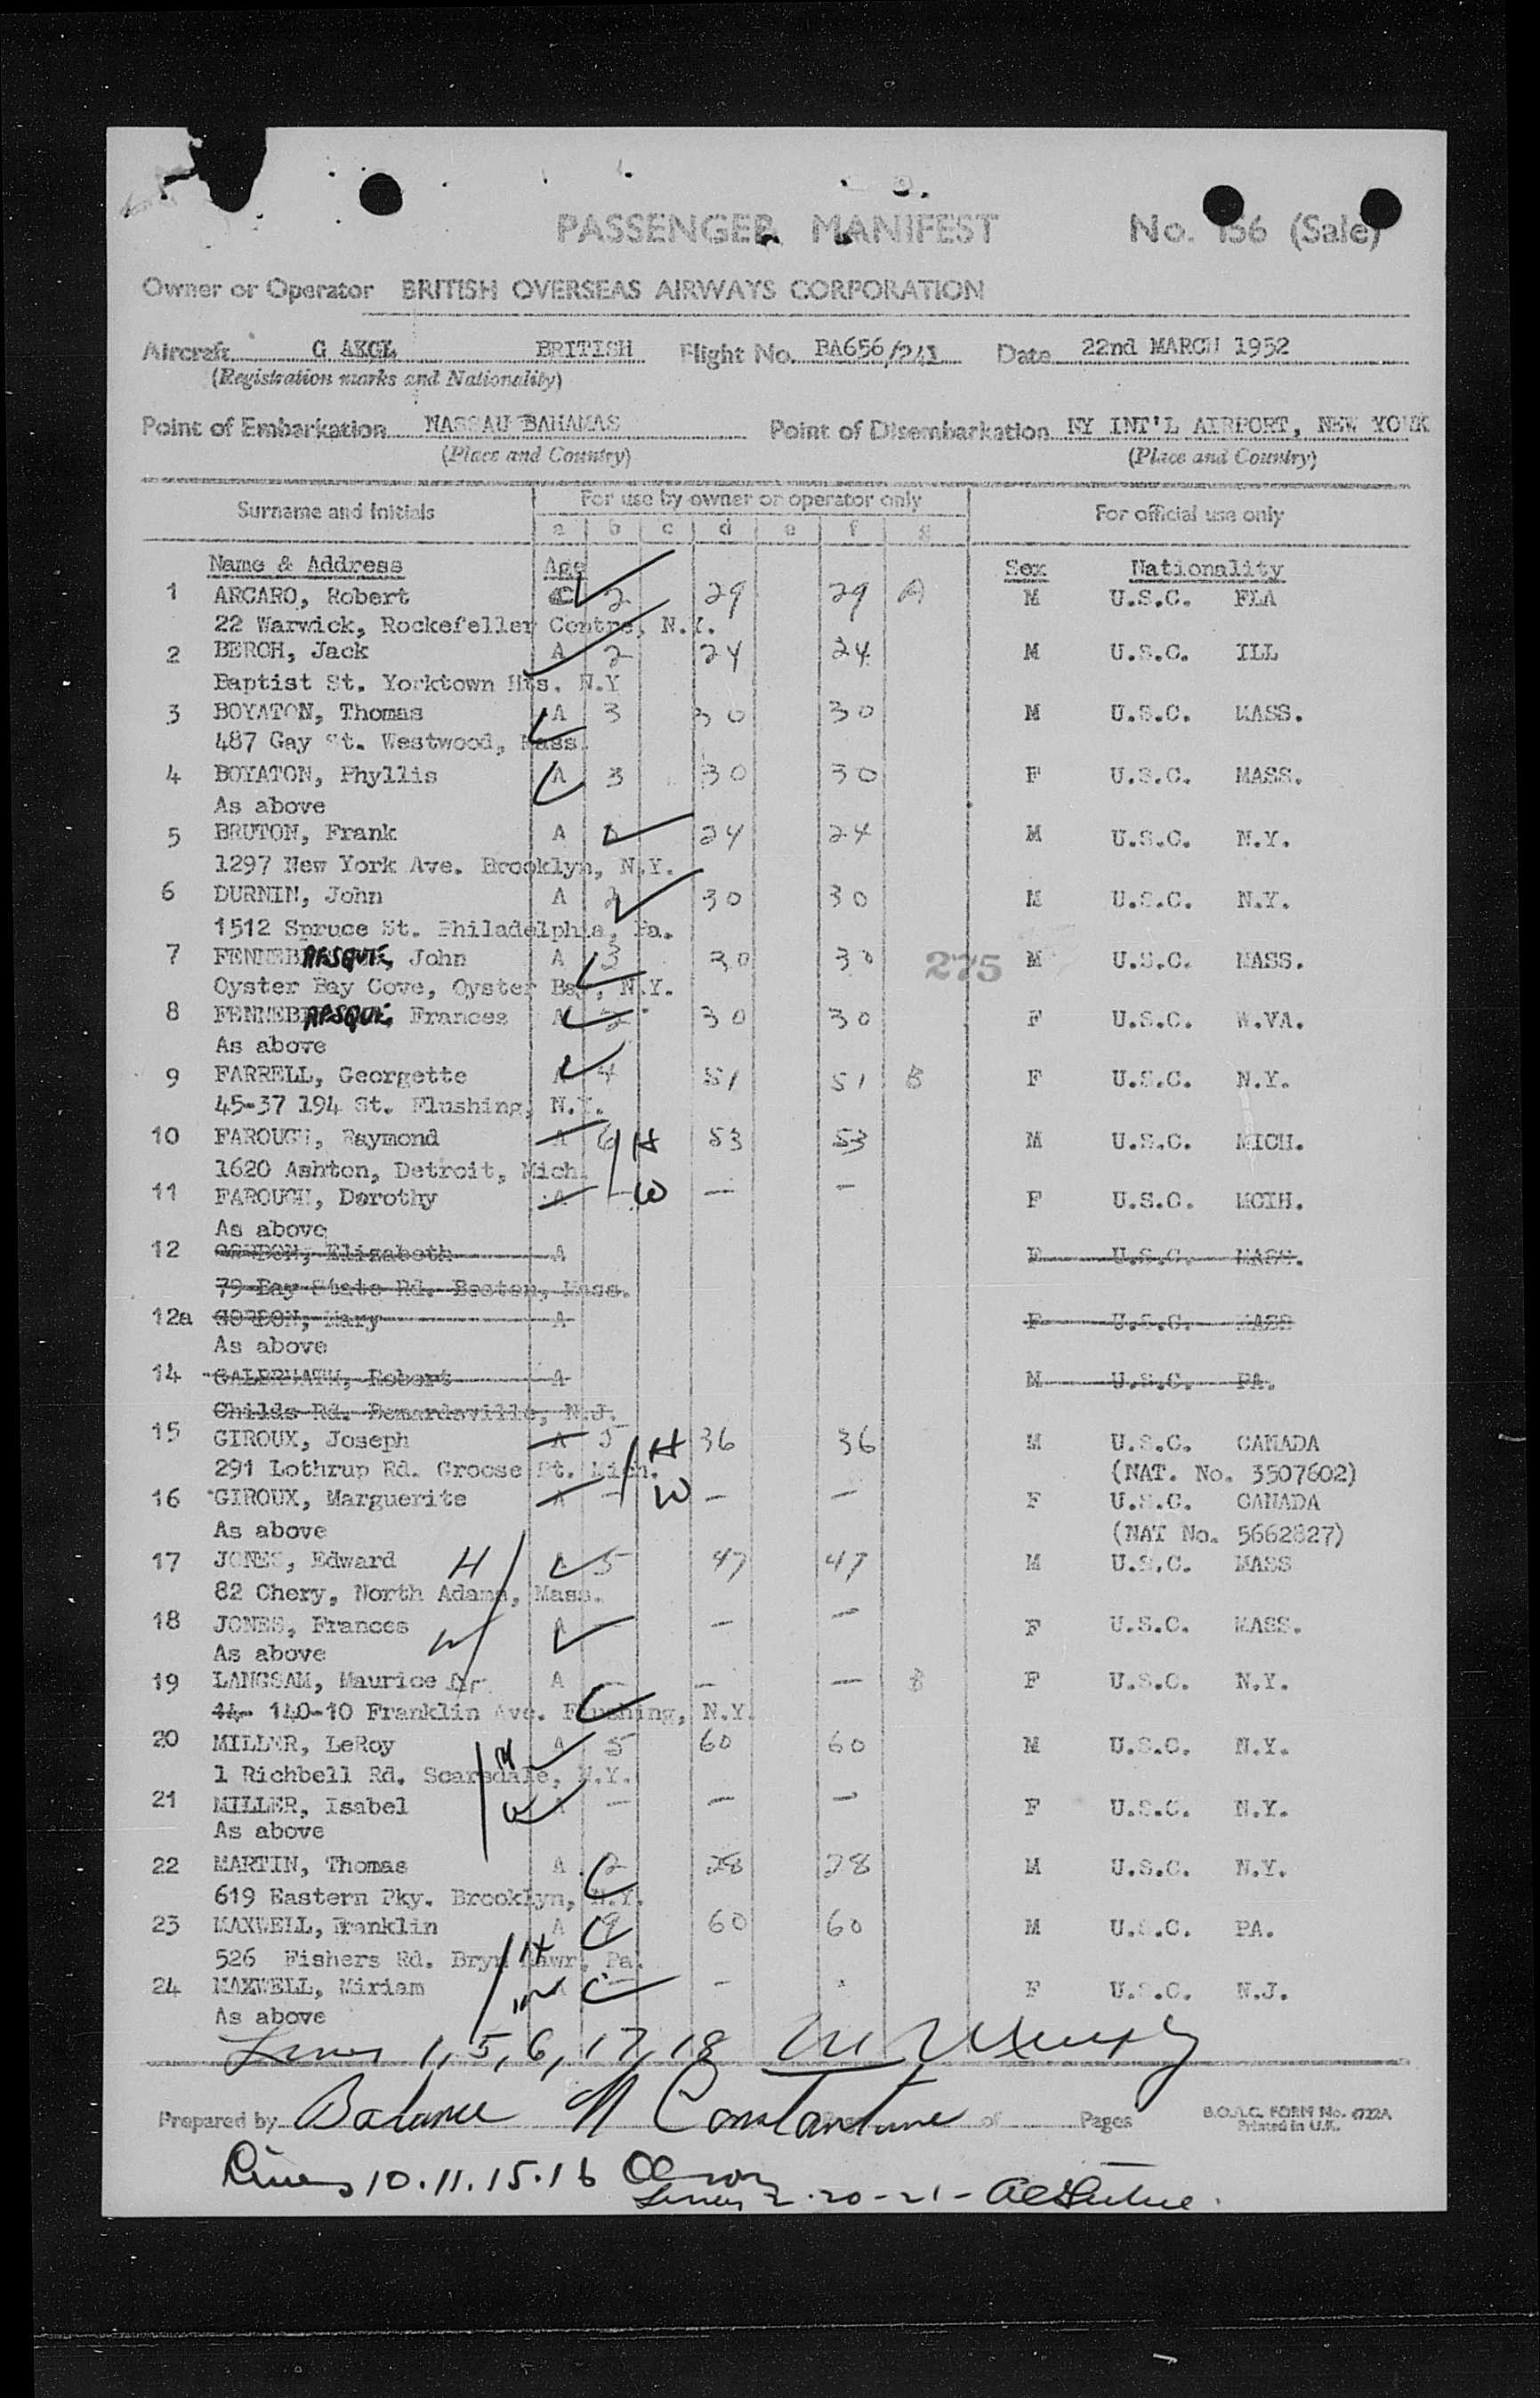 PASSENGER MANIFEST No. 156 (Sale)
Owner or Operator BRITISH OVERSEAS AIRWAYS CORPORATION
Aircraft G AKGL BRITISH Flight No. BA656/241 Date 22nd MARCH 1952
(Registration marks and Nationality)
Point of Embarkation NASSAU BAHAMAS Point of Disembarkation NY INT'L AIRPORT, NEW YORK
(Place and Country) (Place and Country)
Surname and Initials For use by owner or operator only For official use only
a b c d e f g
Name & Address Age Sex Nationality
1 ARCARO, Robert 2 29 29 A M U.S.C. FLA
22 Warwick, Rockefeller Centre, N.Y.
2 BERCH, Jack A 2 24 24 M U.S.C. ILL
Baptist St. Yorktown Hts. N.Y
3 BOYATON, Thomas A 3 30 30 M U.S.C. MASS.
487 Gay St. Westwood, Mass.
4 BOYATON, Phyllis A 3 30 30 F U.S.C. MASS.
As above
5 BRUTON, Frank A 24 24 M U.S.C. N.Y.
1297 New York Ave. Brooklyn, N.Y.
6 DURNIN, John A 2 30 30 M U.S.C. N.Y.
1512 Spruce St. Philadelphia, Pa.
7 FENNEBRESQUE, John A 3 30 30 275 M U.S.C. MASS.
Oyster Bay Cove, Oyster Bay, N.Y.
8 FENNEBRESQUE, Frances A 2 30 30 F U.S.C. W.VA.
As above
9 FARRELL, Georgette A 4 51 51 B F U.S.C. N.Y.
45-37 194 St. Flushing, N.Y.
10 FAROUGH, Raymond A 6 H 53 53 M U.S.C. MICH.
1620 Ashton, Detroit, Mich.
11 FAROUGH, Dorothy A - W - - F U.S.C. MCIH.
As above
12 GORDON, Elizabeth A F U.S.C. MASS.
79 Bay State Rd. Boston, Mass.
12a GORDON, Mary A F U.S.C. MASS
As above
14 GALBREATH, Robert A M U.S.C. PA.
Childs Rd. Bernardsville, N.J.
15 GIROUX, Joseph A 5 H 36 36 M U.S.C. CANADA
291 Lothrup Rd. Groose Pt. Mich. (NAT. No. 3507602)
16 GIROUX, Marguerite A - W - - F U.S.C. CANADA
As above (NAT No. 5662827)
17 JONES, Edward H A 5 47 47 M U.S.C. MASS
82 Chery, North Adams, Mass.
18 JONES, Frances W A - - F U.S.C. MASS.
As above
19 LANGSAM, Maurice Dr. A - - - B F U.S.C. N.Y.
14- 140-10 Franklin Ave. Flushing, N.Y.
20 MILLER, LeRoy H A 5 60 60 M U.S.C. N.Y.
1 Richbell Rd. Scarsdale, N.Y.
21 MILLER, Isabel W A - - - F U.S.C. N.Y.
As above
22 MARTIN, Thomas A 2 28 28 M U.S.C. N.Y.
619 Eastern Pky. Brooklyn, N.Y.
23 MAXWELL, Franklin H A 9 60 60 M U.S.C. PA.
526 Fishers Rd. Bryn Mawr, Pa.
24 MAXWELL, Miriam W A - - F U.S.C. N.J.
As above
Lines 1, 5, 6, 17, 18
Prepared by Balance N Constantine of Pages B.O.A.C. FORM No. 1722A
Printed in U.K.
Lines 10.11.15.16
Lines 2.20-21-